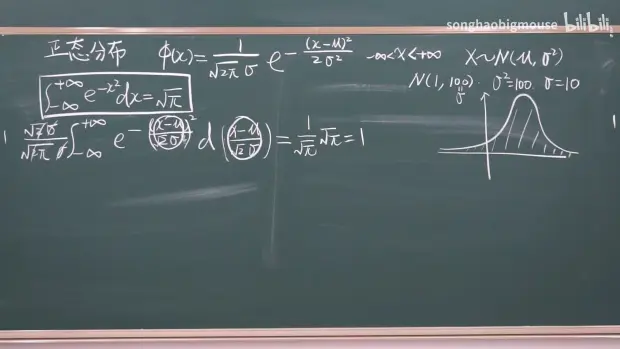 songhaobigmouse bilibili
正态分布 φ(x)=1/(√2π σ) e^(-(x-μ)²/(2σ²)) -∞<x<+∞ X~N(μ,σ²)
∫_{-∞}^{+∞} e^(-x²)dx=√π N(1,100). σ²=100. σ=10
√2σ/(√2π σ) ∫_{-∞}^{+∞} e^(-((x-μ)/(√2σ))²) d((x-μ)/(√2σ)) = 1/√π √π = 1